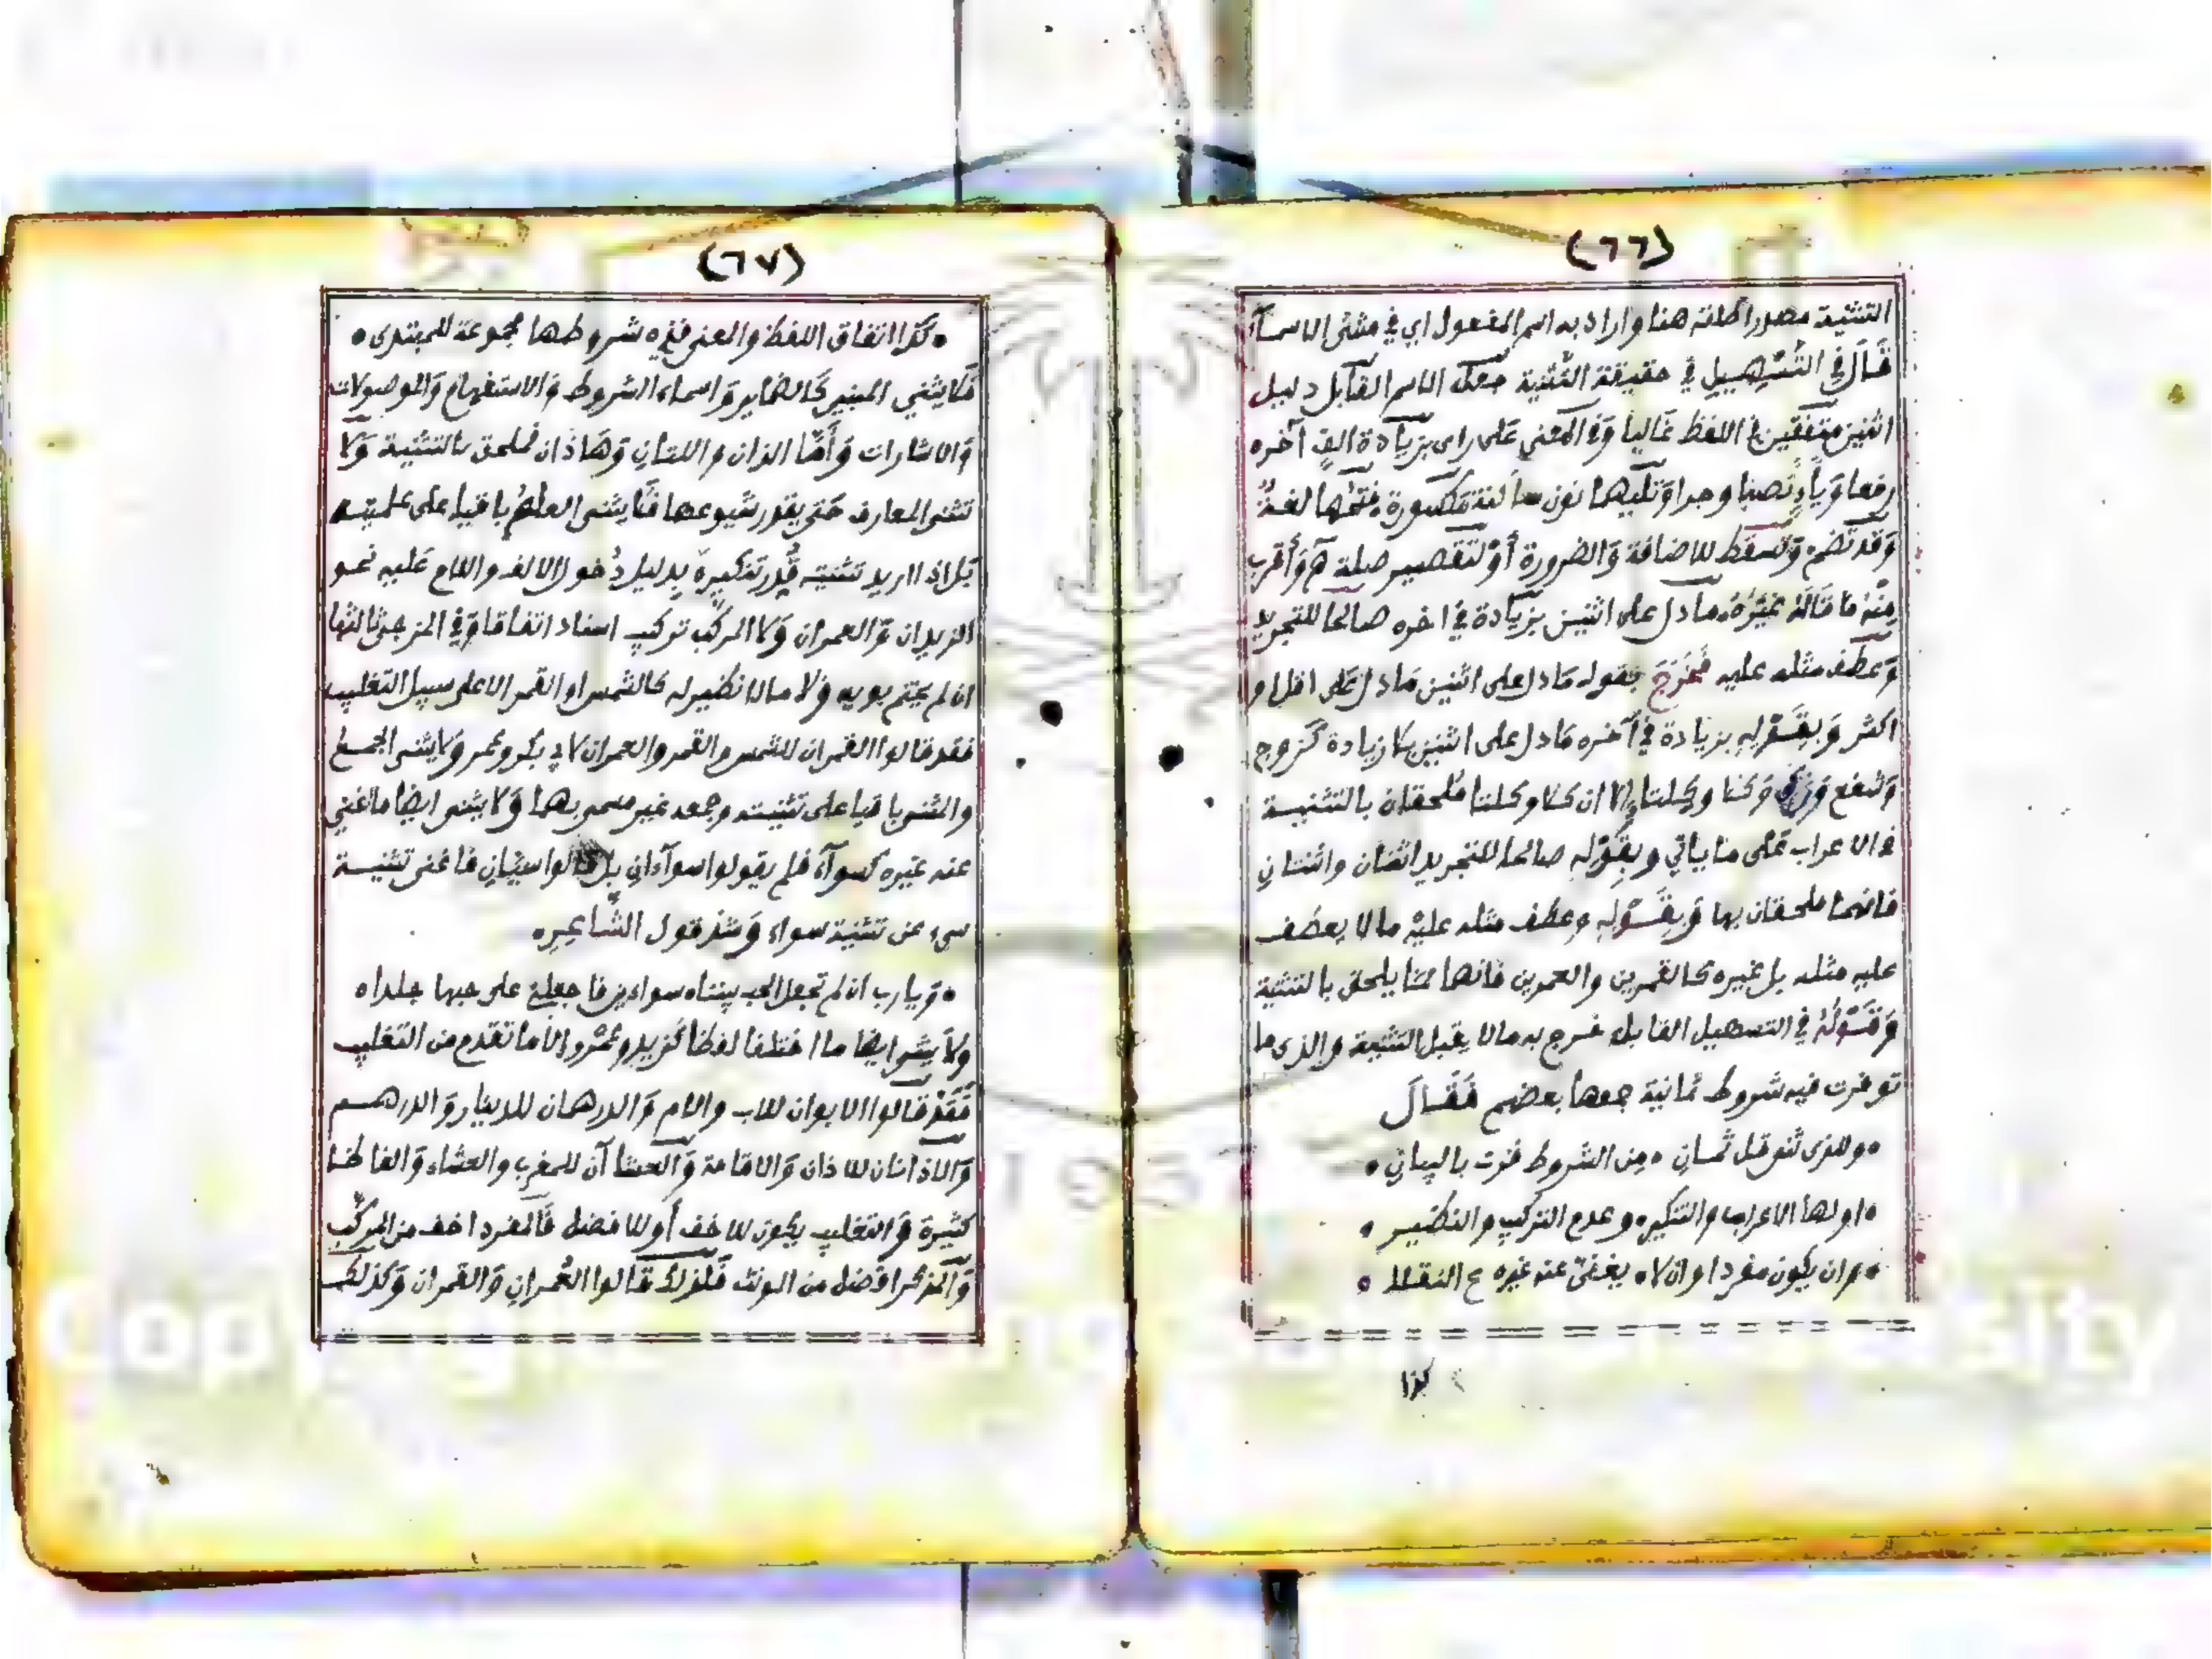 (٦٦)
التثنية مصدر اطلقه هنا واراد به اسم المفعول اي في مثنى الاسماء
قَالَ في التَّسْهِيلِ في حقيقة التثنية جعل الاسم القابل دليل
اثنين متفقين في اللفظ غالبا وَفي المعنى عَلى راى بزيادة الف آخره
رفعا وَياء نصبا وجرا وَتليهما نون مكسورة فتحها لغة
وَقد تضم وَتسقط للاضافة وَالضرورة أوْ لتقصير صلة هَ وَأقرب
مِنْهُ مَا قَالَهُ غَيْرُهُ مادل على اثنين بزيادة في اخره صالحا للتجريد
وَعطف مثله عليه فَخَرَجَ بقوله مَادل على اثنين مَادل عَلى اقل او
اكثر وَبِقَوْلِهِ بزيادة في آخره مَادل على اثنين بلا زيادة كزوج
وَشفع وَزكى وَكلا وكلتا إلا ان كلا وكلتا مُلحقان بالتثنية
في الاعراب عَلى ما ياتي وبِقَوْلِهِ صالحا للتجريد اثنان واثنتانِ
فانهما ملحقان بها وَبِقَوْلِهِ وعطف مثله عليْهِ مالا يعطف
عليهِ مثله بل غيره كالقمرين والعمرين فانهما ممّا يلحق بالتثنية
وَقَوْلُهُ في التسهيل القابل خرج به مالا يقبل التثنية والذى ما
توفرت فيه شروط ثمانية جمعها بعضهم فَقَالَ
• وللذى ثنى قل ثمانِ • مِنَ الشروط فزت بالبيانِ •
• اولها الاعراب والتنكير • وعدم التركيب والنظير •
• وان يكون مفردا وان لا • يغنىَ عنه غيره ع النقلا •
كذا
(٦٧)
• كذا اتفاق اللفظ والمعنى فذِه شروطها مجموعة للمبتدى •
فَلا يثنى المبنى كَالضماير وَاسماء الشروط وَالاستفهام وَالموصولات
وَالاشارات وَأَمَّا اللذان واللتانِ وَهَاذَان فملحق بالتثنية وَلا
تثنى المعارف حَتى يقدر شيوعها فَلا يثنى العلم باقيا على علميته
بَل اذا اريد تثنيته قُدر تنكيره بِدليل دُخول الالف واللام عَليه نحو
الزيدان وَالعمران وَلا المركب تركيب اسناد اتفاقا وَفي المزجى ثالثها
ان لم يختم بويه وَلا مالا نظير له كالشمس او القمر الا على سبيل التغليب
فقد قالوا القمران للشمس والقمر والعمران لابي بكر وعمر وَلا يثنى الجمع
والمثنى باقيا على تثنيته وجمعه غير مسمى بهما وَلا يثنى ايضا ما اغنى
عنه غيره كسوآء فلم يقولوا سوآءانِ بل قالوا سيّانِ فاغنى تثنية
سىء عن تثنية سواء وَشذ قول الشَّاعِرِ •
• وَيا رب ان لم تجعل الحب بيننا • سواءين فاجعلنى على حبها جلدا •
ولا يثنى ايضا ما اختلفا لفظا كَزيد وعَمْرو الا ما تقدم من التغليب
فَقَدْ قالوا الابوان للاب والام وَالدرهمان للدينار وَالدرهم
وَالاذانان للاذان وَالاقامة وَالعشاآن للمغرب والعشاء وَالفاظها
كثيرة وَالتغليب يكون للاخف أو للافضل فَالمفرد اخف من المركب
وَالمذكر افضل من المونث فَلذلك قَالوا العُمرانِ وَالقمران وَكذلك